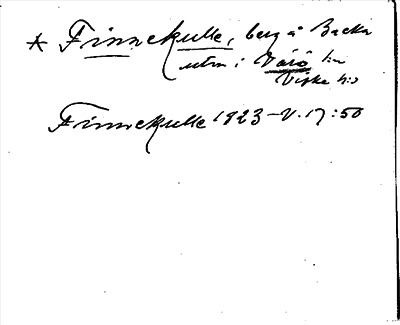 * Finnekulle, berg å Backa
utm i Värö sn
Viske hd
Finnekulle 1823 – V. 17:50